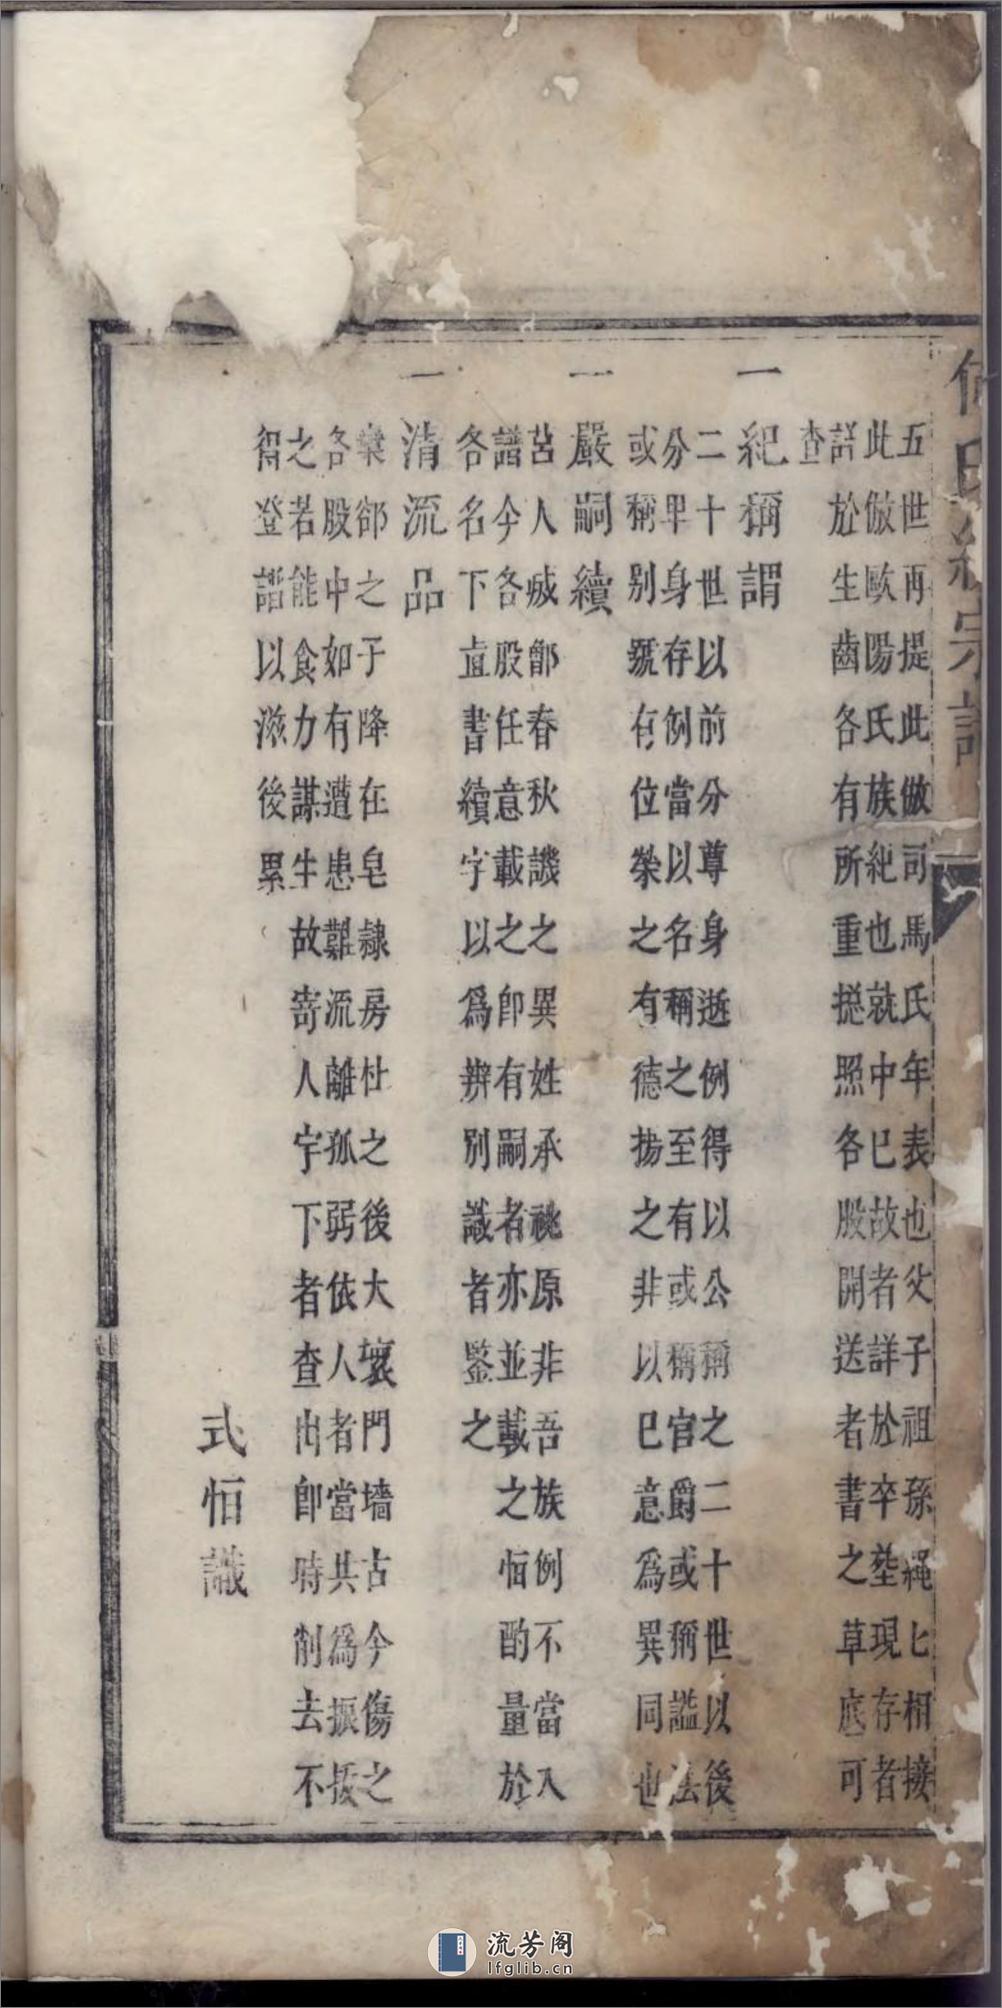 五世再提此倣司馬氏年表也父子祖孫繩匕相接
此倣歐陽氏族紀也就中已故者詳於卒塟現存者
詳於生齒各有所重挩照各股開送者書之草底可
查
一紀稱謂
二十世以前分尊身逝例得以公稱之二十世以後
分卑身存例當以名稱之至有或稱官爵或稱謚法
或稱别號有位榮之有德揚之非以已意為異同也
一嚴嗣續
莒人烕鄫春秋譏之異姓承祧原非吾族例不當入
譜今各股任意載之即有嗣者亦並載之恒酌量於
各名下直書續字以爲辨别識者鑒之
一清流品
欒郤之于降在皂隸房杜之後大壞門墻古今傷之
各股中如有遭患難流離孤弱依人者當共為振拔
之若能食力謀生故寄人宇下者查出即時削去不
得登譜以滋後累
式恒識
流芳阁
lfglib.cn